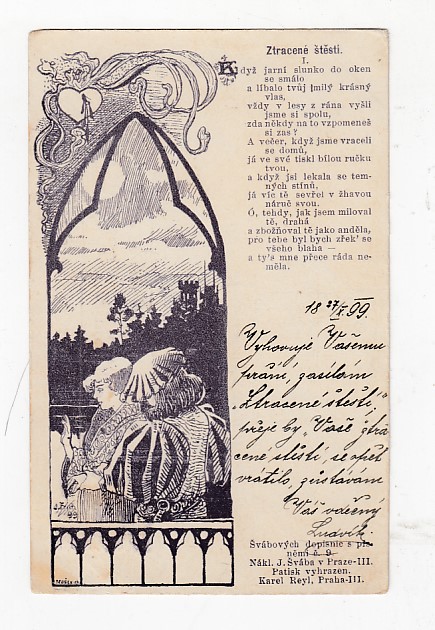 Ztracené štěstí.
I.
Když jarní slunko do oken
se smálo
a líbalo tvůj milý krásný
vlas,
vždy v lesy z rána vyšli
jsme si spolu,
zda někdy na to vzpomeneš
si zas?
A večer, když jsme vraceli
se domů,
já ve své tiskl bílou ručku
tvou,
a když jsi lekala se tem-
ných stínů,
já víc tě sevřel v žhavou
náruč svou.
Ó, tehdy, jak jsem miloval
tě, drahá
a zbožňoval tě jako anděla,
pro tebe byl bych zřek' se
všeho blaha —
a ty's mne přece ráda ne-
měla.
18 27/X 99.
Vyhovuje Vašemu
přání, zasílám
„Ztracené štěstí",
přeje by „Vaše ztra
cené štěstí, se opět
vrátilo, zůstávám
Váš vděčný
Ludvík.
Švábových dopisnic s pís
němi č. 9
Nákl. J. Švába v Praze-III.
Patisk vyhrazen.
Karel Reyl, Praha-III.
99